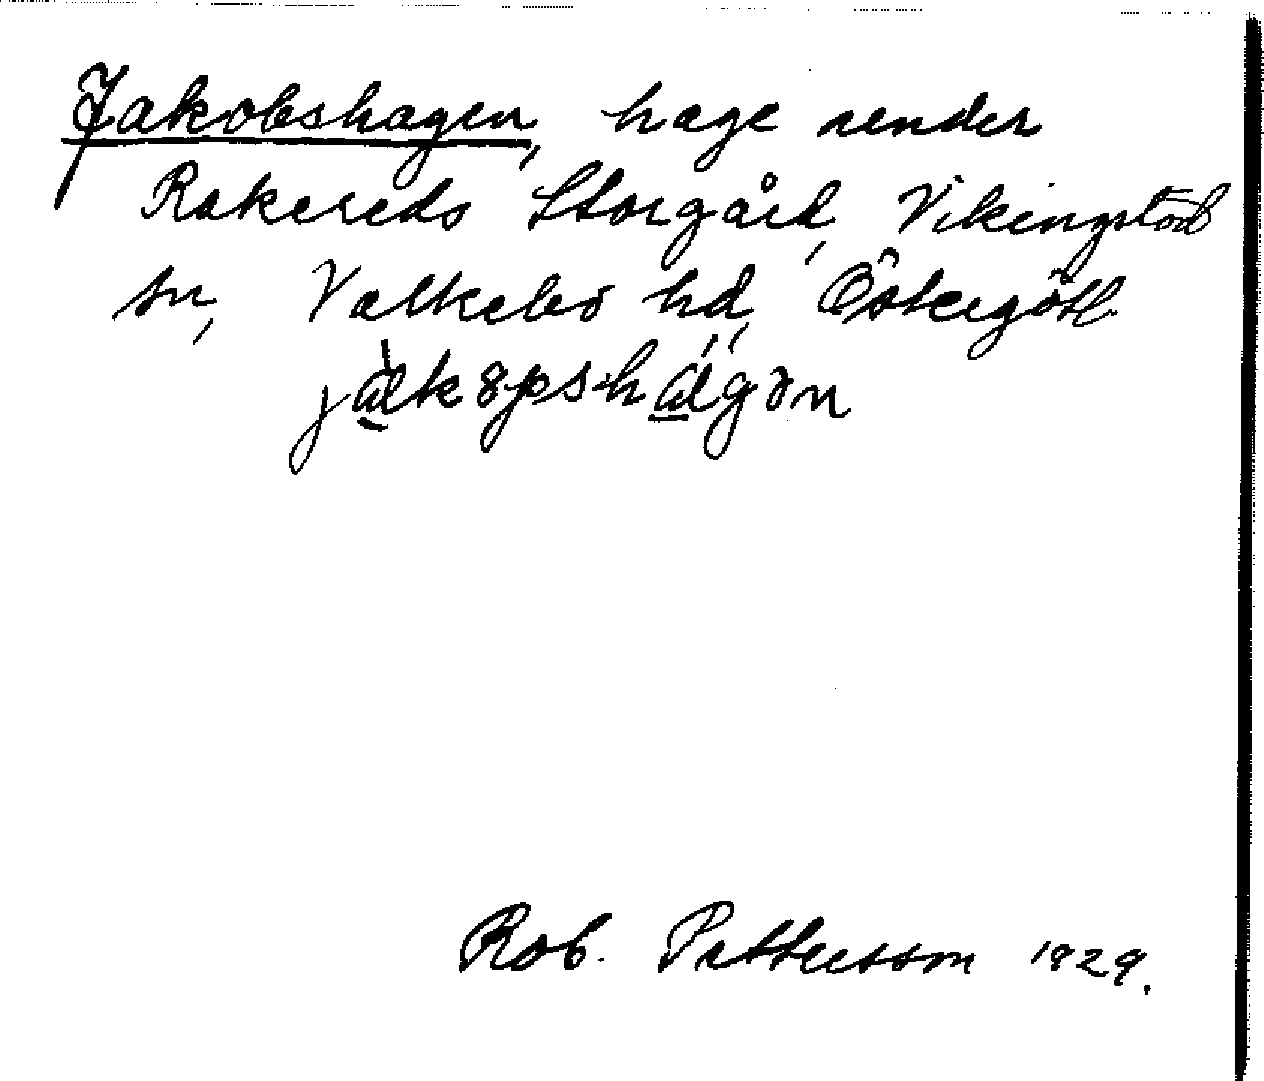 Jakobshagen, hage under
Rakereds Storgård, Vikingstad
sn, Valkebo hd, Östergötl.
Rob. Pettersson 1929.